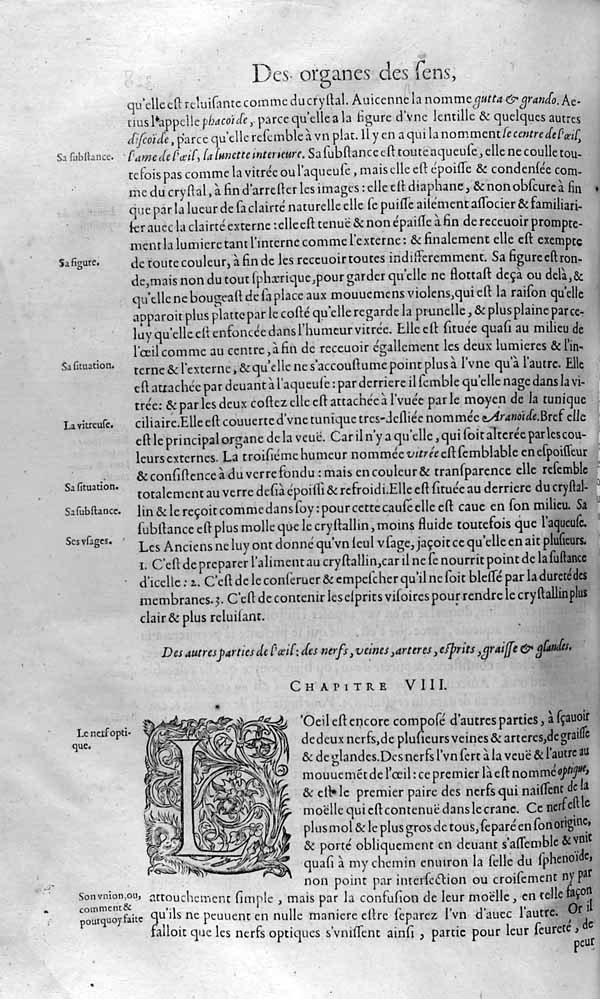 Des organes des sens,
qu'elle est reluisante comme du crystal. Auicenne la nomme gutta & grando. Ae-
tius l'appelle phacoïde, parce qu'elle a la figure d'vne lentille & quelques autres
discoïde, parce qu'elle resemble à vn plat. Il y en a qui la nomment le centre de l'œil,
Sa substance.
l'ame de l'œil, la lunette interieure. Sa substance est toute aqueuse, elle ne coulle tou-
tefois pas comme la vitrée ou l'aqueuse, mais elle est époisse & condensée com-
me du crystal, à fin d'arrester les images: elle est diaphane, & non obscure à fin
que par la lueur de sa clairté naturelle elle se puisse aisément associer & familiari-
ser auec la clairté externe: elle est tenuë & non épaisse à fin de receuoir prompte-
ment la lumiere tant l'interne comme l'externe: & finalement elle est exempte
Sa figure.
de toute couleur, à fin de les receuoir toutes indifferemment. Sa figure est ron-
de, mais non du tout sphærique, pour garder qu'elle ne flottast deçà ou delà, &
qu'elle ne bougeast de sa place aux mouuemens violens, qui est la raison qu'elle
apparoit plus platte par le costé qu'elle regarde la prunelle, & plus plaine par ce-
luy qu'elle est enfoncée dans l'humeur vitrée. Elle est située quasi au milieu de
l'œil comme au centre, à fin de receuoir égallement les deux lumieres & l'in-
Sa situation.
terne & l'externe, & qu'elle ne s'accoustume point plus à l'vne qu'à l'autre. Elle
est attachée par deuant à l'aqueuse: par derriere il semble qu'elle nage dans la vi-
trée: & par les deux costez elle est attachée à l'vuée par le moyen de la tunique
La vitreuse.
ciliaire. Elle est couuerte d'vne tunique tres-desliée nommée Aranoïde. Bref elle
est le principal organe de la veuë. Car il n'y a qu'elle, qui soit alterée par les cou-
leurs externes. La troisiéme humeur nommée vitrée est semblable en espoisseur
& consistence à du verre fondu: mais en couleur & transparence elle resemble
Sa situation.
totalement au verre desià époissi & refroidi. Elle est située au derriere du crystal-
Sa substance.
lin & le reçoit comme dans soy: pour cette cause elle est caue en son milieu. Sa
substance est plus molle que le crystallin, moins fluide toutefois que l'aqueuse.
Ses vsages.
Les Anciens ne luy ont donné qu'vn seul vsage, jaçoit ce qu'elle en ait plusieurs.
1. C'est de preparer l'aliment au crystallin, car il ne se nourrit point de la sustance
d'icelle: 2. C'est de le conseruer & empescher qu'il ne soit blessé par la dureté des
membranes. 3. C'est de contenir les esprits visoires pour rendre le crystallin plus
clair & plus reluisant.
Des autres parties de l'œil: des nerfs, veines, arteres, esprits, graisse & glandes.
CHAPITRE VIII.
Le nerf opti-
que.
L'Oeil est encore composé d'autres parties, à sçauoir
de deux nerfs, de plusieurs veines & arteres, de graisse
& de glandes. Des nerfs l'vn sert à la veuë & l'autre au
mouuemẽt de l'œil: ce premier là est nommé optique,
& est le premier paire des nerfs qui naissent de la
moëlle qui est contenuë dans le crane. Ce nerf est le
plus mol & le plus gros de tous, separé en son origine,
& porté obliquement en deuant s'assemble & vnit
quasi à my chemin enuiron la selle du sphenoïde,
non point par intersection ou croisement ny par
Son vnion, ou,
comment &
pourquoy faite
attouchement simple, mais par la confusion de leur moëlle, en telle façon
qu'ils ne peuuent en nulle maniere estre separez l'vn d'auec l'autre. Or il
falloit que les nerfs optiques s'vnissent ainsi, partie pour leur seureté, de
peur